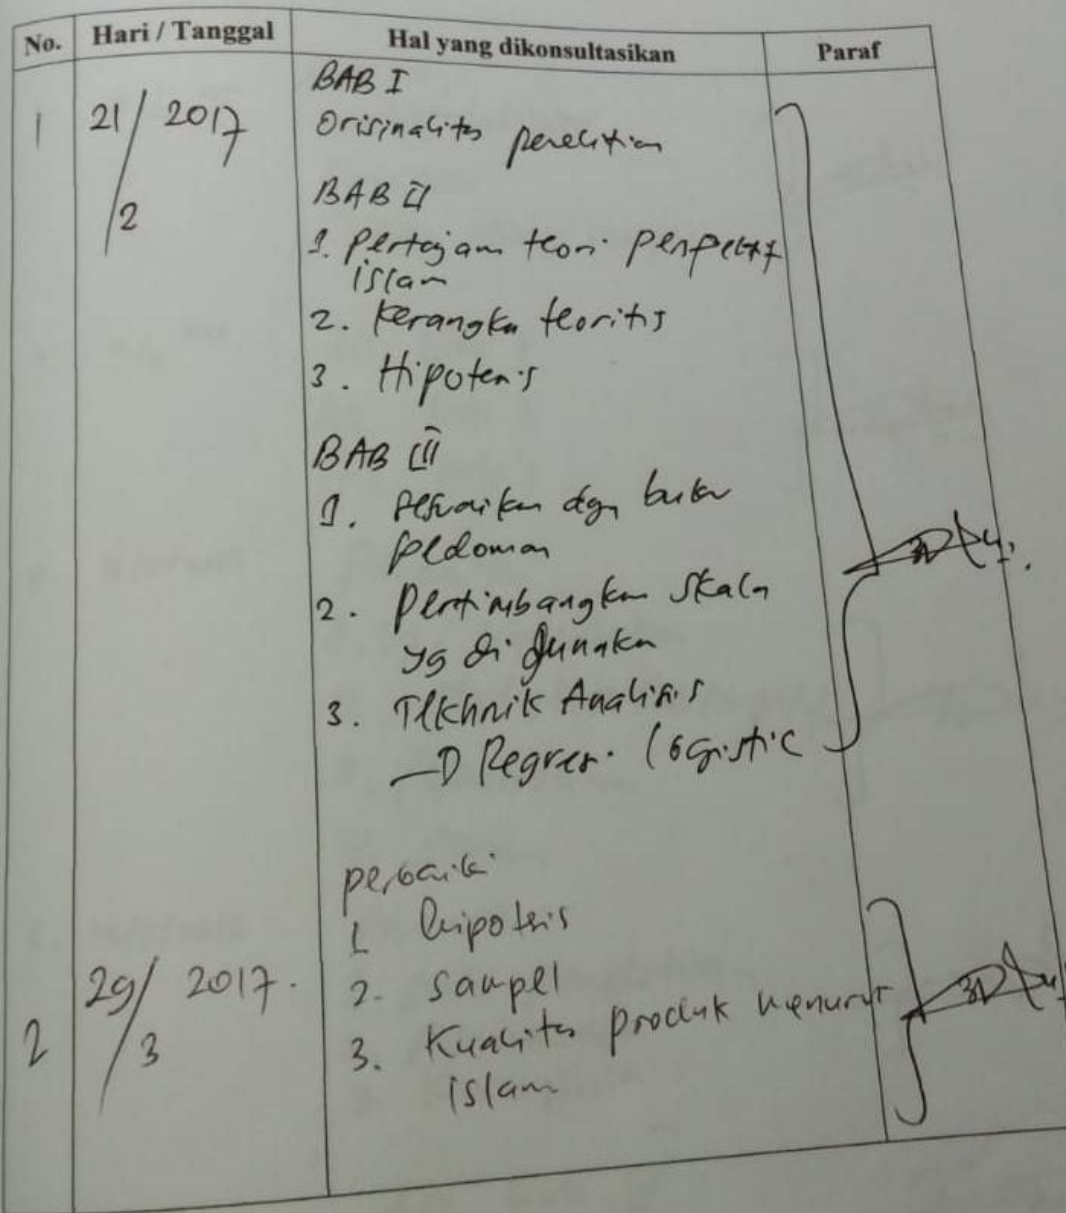 No. Hari / Tanggal Hal yang dikonsultasikan Paraf
BAB I
1 21/2 2017 Orisinalitas penelitian
BAB II
1. Pertajam teori perspektif
islam
2. Kerangka teoritis
3. Hipotesis
BAB III
1. Sesuaikan dgn buku
pedoman
2. Pertimbangkan skala
yg di gunakan
3. Tekhnik Analisis
→ Regresi logistic
perbaiki
1. hipotesis
2 29/3 2017. 2. sampel
3. Kualitas produk menurut
islam